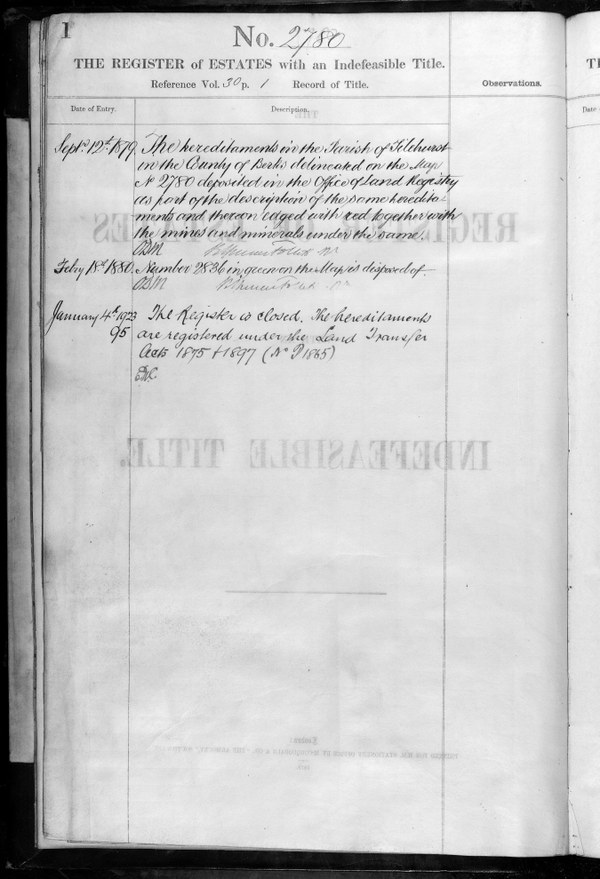 1
No. 2780
THE REGISTER of ESTATES with an Indefeasible Title.
Reference Vol. 30 p. 1 Record of Title.
Observations.
Date of Entry.
Description.
Septr. 12th 1879. The hereditaments in the Parish of Tilehurst
in the County of Berks delineated on the Map
No 2780 deposited in the Office of Land Registry
as part of the description of the same heredita-
ments and thereon edged with red together with
the mines and minerals under the same.
Feby 18th 1880. Number 2836 in green on the Map is disposed of.
January 4th 1923 The Register is closed. The hereditaments
95 are registered under the Land Transfer
Acts 1875 & 1897 (No P 1865)
INDEFEASIBLE TITLE.